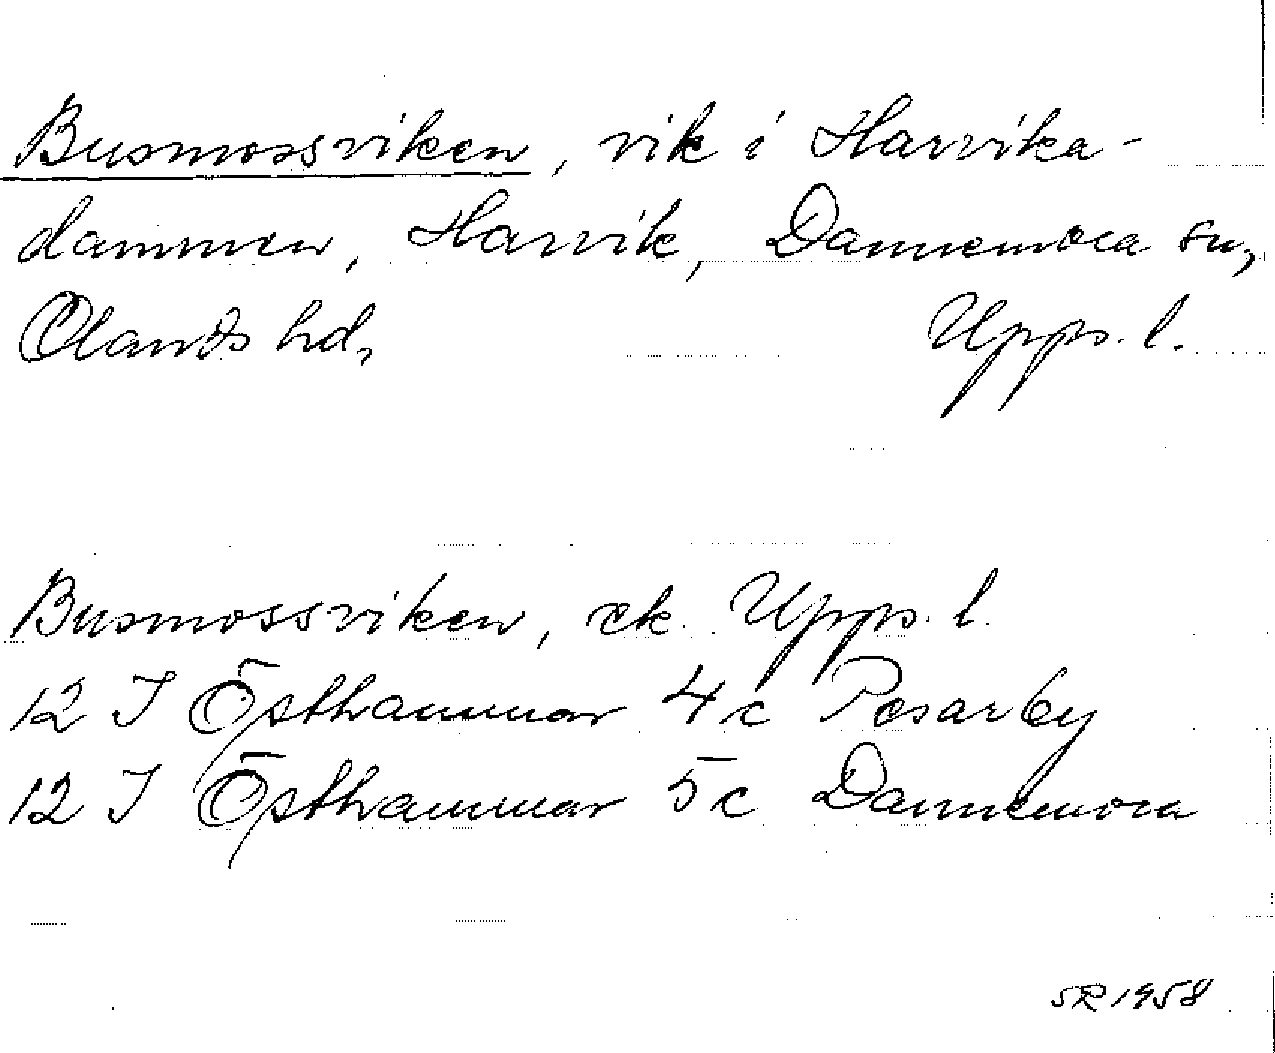 Busmossviken, vik i Harvika-
dammen, Harvik, Dannemora sn,
Olands hd, Upps. l.
Busmossviken, ek. Upps. l.
12 I Östhammar 4c Pesarby
12 I Östhammar 5c Dannemora
SR 1958